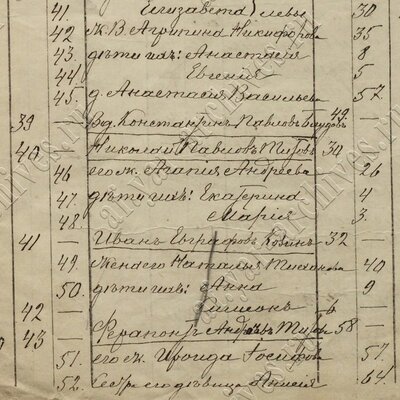 41. Елизавета) левы 30
42 ж. В. Агрипина Никифорова 35
43. дѣти ихъ: Анастасія 8
44 Евгенія 5
45. д. Анастасія Васильева 57
39 — Вд. Константинъ Павловъ 49.
40 — Николай Павловъ Титовъ 30
46 его ж. Агапія Андреева 26
47. дѣти ихъ: Екатерина 4
48. Марія 3.
41 — Иванъ Евграфовъ 32
49. Жена его Наталія 40
50. дѣти ихъ: Анна 9
42 — 6
43 — Ферапонтъ Андреевъ Титовъ 58 —
51. его ж. Ироида Іосифова 57.
52. Сестра его дѣвица Анисія 64.